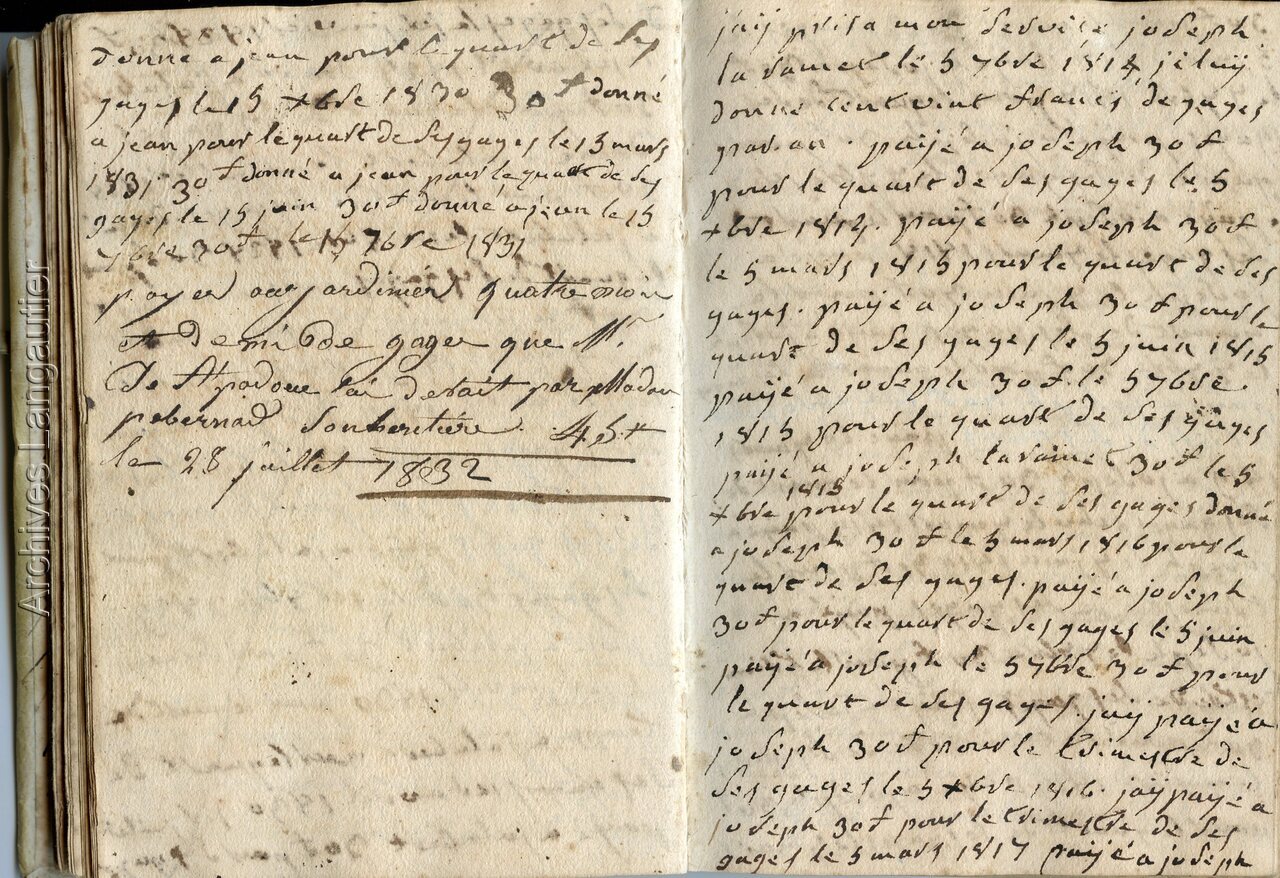 donné a jean pour le quart de ses
gages le 15 xbre 1830 30 f donné
a jean pour le quart de ses gages le 15 mars
1831 30 f donné a jean pour le quart de ses
gages le 15 juin 30 f donné a jean le 15
7bre 30 f le 15 7bre 1831
payer au jardinier quatre mois
et demi de gages que Mr
De devait par Madame
son heritiere 45 f
le 28 juillet 1832
jaij pris a mon service joseph
laramet le 5 7bre 1814, je luij
donne cent vint francs de gages
par an. paijé a joseph 30 f
pour le quart de ses gages le 5
xbre 1814. paijé a joseph 30 f
le 5 mars 1815 pour le quart de ses
gages. paijé a joseph 30 f pour le
quart de ses gages le 5 juin 1815
paijé a joseph 30 f. le 5 7bre.
1815 pour le quart de ses gages
paijé a joseph laramet 30 f le 5
xbre 1815 pour le quart de ses gages donné
a joseph 30 f le 5 mars 1816 pour le
quart de ses gages. paijé a joseph
30 f pour le quart de ses gages le 5 juin
paijé a joseph le 5 7bre 30 f pour
le quart de ses gages. jaij paijé a
joseph 30 f pour le trimestre de
ses gages le 5 xbre 1816. jaij paijé a
joseph 30 f pour le trimestre de ses
gages le 5 mars 1817 paijé a joseph
Archives Langautier